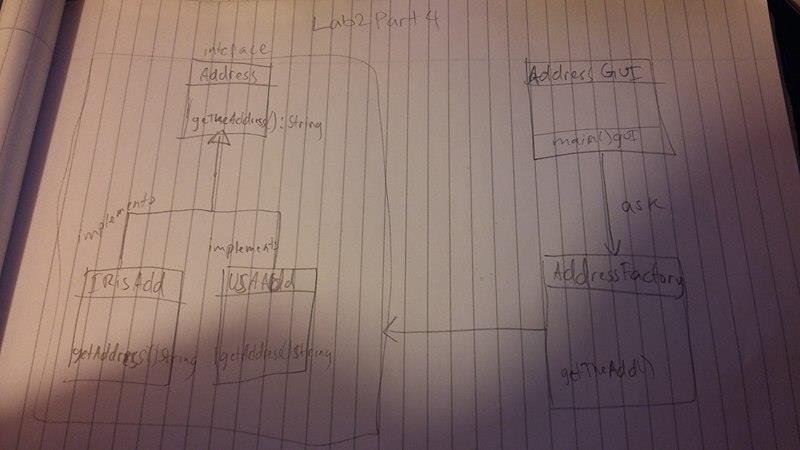 Lab2 Part 4
interface
Address
getTheAddress():String
implements
implements
IRisAdd
getAddress()String
USAAdd
getAddress()String
Address GUI
main()gUI
ask
AddressFactory
getTheAdd()